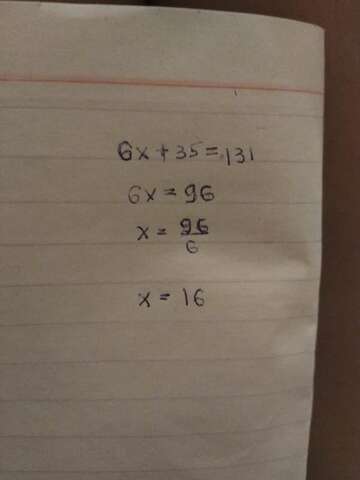 6x+35=131
6x=96
x=96/6
x=16